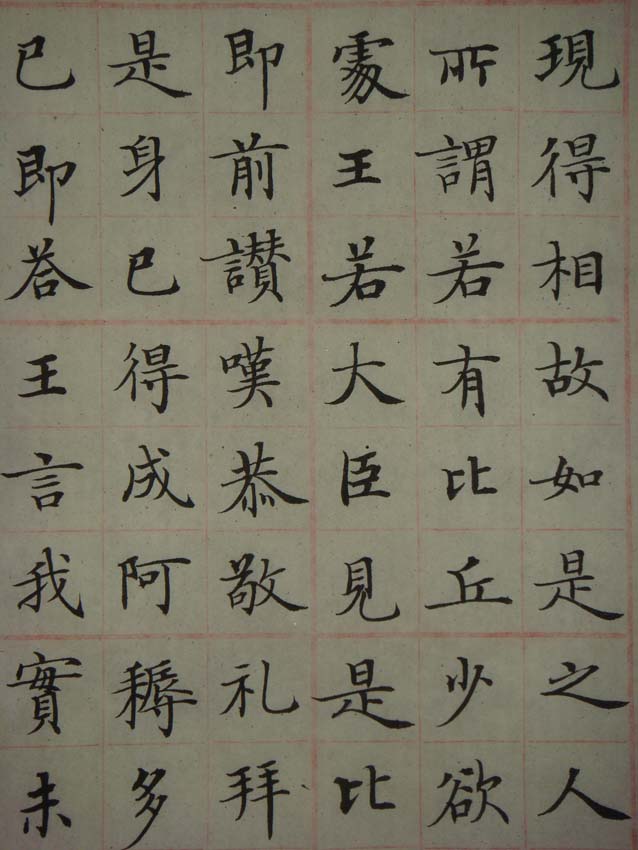 現得相故如是之人
所謂若有比丘少欲
處王若大臣見是比
即前讃嘆恭敬礼拜
是身已得成阿耨多
已即荅王言我實未